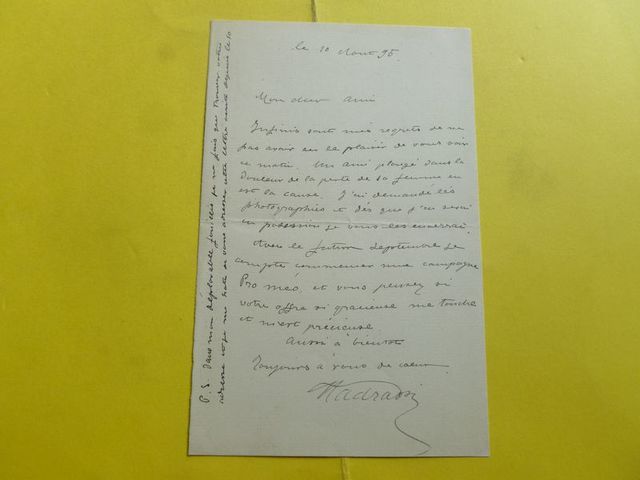 le 10 Aout 95.
Mon cher Ami
Infinis sont mes regrets de ne
pas avoir eu le plaisir de vous voir
ce matin. Un ami plongé dans la
douleur de la perte de sa femme en
est la cause. J'ai demandé les
photographies et dès que j'en serai
en possession je vous les enverrai.
Avec le Septembre je
compte commencer une campagne
Pro méo, et vous pensez si
votre offre si gracieuse me touche
et m'est précieuse.
Aussi à bientot
Toujours à vous de coeur
P. S. Dans mon déplorable fouillis je ne puis que trouver votre
adresse et je me hate de vous adresser cette lettre écrite depuis le 10